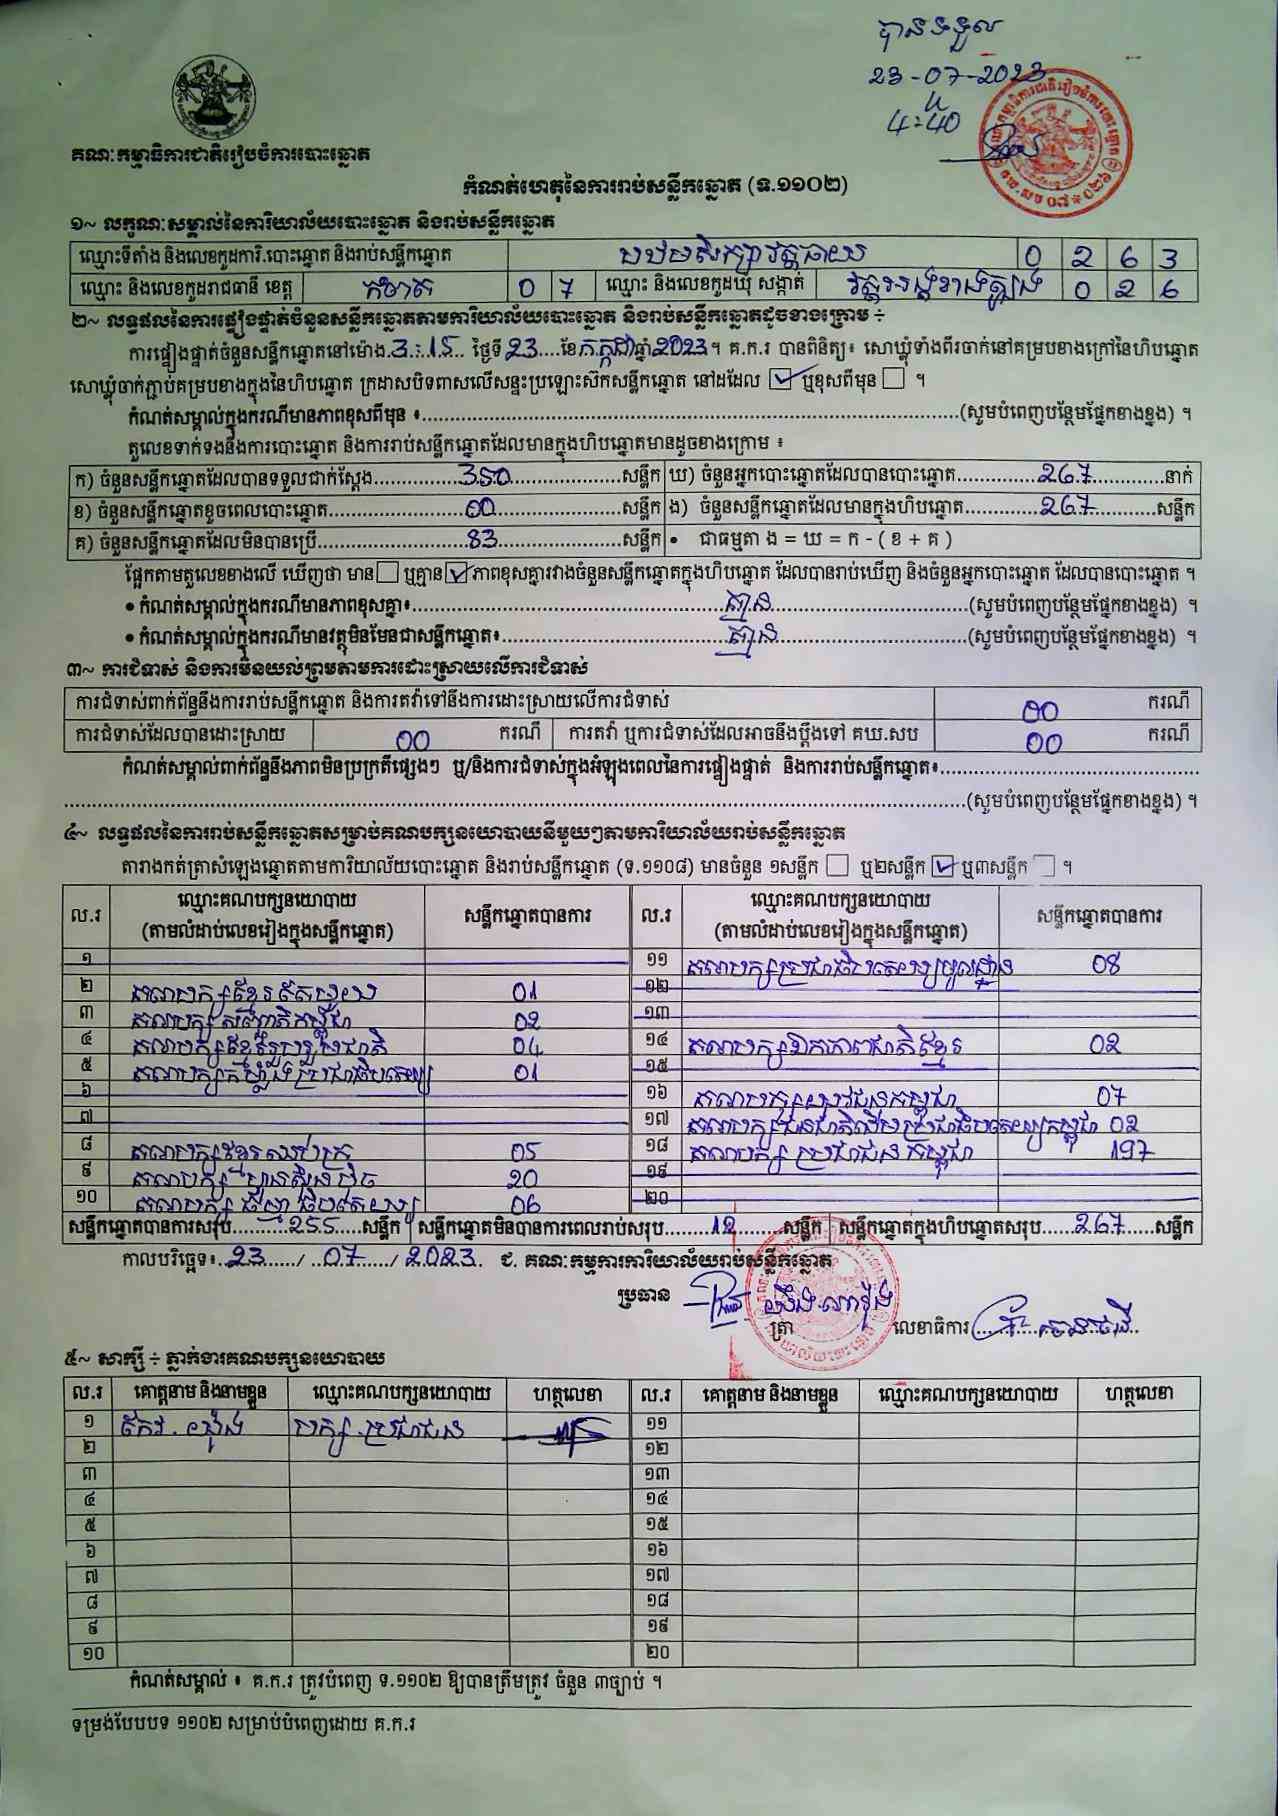 បានទទួល
23-07-2023
4:40
គណៈកម្មាធិការជាតិរៀបចំការបោះឆ្នោត
កំណត់ហេតុនៃការរាប់សន្លឹកឆ្នោត (ទ.១១០២)
១~ លក្ខណៈសម្គាល់នៃការិយាល័យបោះឆ្នោត និងរាប់សន្លឹកឆ្នោត
ឈ្មោះទីតាំង និងលេខកូដការិ.បោះឆ្នោត និងរាប់សន្លឹកឆ្នោត បឋមសិក្សាវត្ត 0 2 6 3
ឈ្មោះ និងលេខកូដរាជធានី ខេត្ត កំពត 0 7 ឈ្មោះ និងលេខកូដឃុំ សង្កាត់ វត្តអង្គខាងត្បូង 0 2 6
២~ លទ្ធផលនៃការផ្ទៀងផ្ទាត់ចំនួនសន្លឹកឆ្នោតតាមការិយាល័យបោះឆ្នោត និងរាប់សន្លឹកឆ្នោតដូចខាងក្រោម ÷
ការផ្ទៀងផ្ទាត់ចំនួនសន្លឹកឆ្នោតនៅម៉ោង.3.:.15.. ថ្ងៃទី23....ខែ.កក្កដាឆ្នាំ.2023.។ គ.ក.រ បានពិនិត្យ៖ សោឃ្លុំទាំងពីរចាក់នៅគម្របខាងក្រៅនៃហិបឆ្នោត
សោឃ្លុំចាក់ភ្ជាប់គម្របខាងក្នុងនៃហិបឆ្នោត ក្រដាសបិទពាសលើសន្ទះប្រឡោះស៊កសន្លឹកឆ្នោត នៅដដែល ☑ ឬខុសពីមុន ☐ ។
កំណត់សម្គាល់ក្នុងករណីមានភាពខុសពីមុន ៖........(សូមបំពេញបន្ថែមផ្នែកខាងខ្នង) ។
តួលេខទាក់ទងនឹងការបោះឆ្នោត និងការរាប់សន្លឹកឆ្នោតដែលមានក្នុងហិបឆ្នោតមានដូចខាងក្រោម ៖
ក) ចំនួនសន្លឹកឆ្នោតដែលបានទទួលជាក់ស្តែង........350........សន្លឹក ឃ) ចំនួនអ្នកបោះឆ្នោតដែលបានបោះឆ្នោត........267........នាក់
ខ) ចំនួនសន្លឹកឆ្នោតខូចពេលបោះឆ្នោត........00........សន្លឹក ង) ចំនួនសន្លឹកឆ្នោតដែលមានក្នុងហិបឆ្នោត........267........សន្លឹក
គ) ចំនួនសន្លឹកឆ្នោតដែលមិនបានប្រើ........83........សន្លឹក • ជាធម្មតា ង = ឃ = ក - ( ខ + គ )
ផ្អែកតាមតួលេខខាងលើ ឃើញថា មាន ☐ ឬគ្មាន ☑ ភាពខុសគ្នារវាងចំនួនសន្លឹកឆ្នោតក្នុងហិបឆ្នោត ដែលបានរាប់ឃើញ និងចំនួនអ្នកបោះឆ្នោត ដែលបានបោះឆ្នោត ។
• កំណត់សម្គាល់ក្នុងករណីមានភាពខុសគ្នា៖........គ្មាន........(សូមបំពេញបន្ថែមផ្នែកខាងខ្នង) ។
• កំណត់សម្គាល់ក្នុងករណីមានវត្ថុមិនមែនជាសន្លឹកឆ្នោត៖........គ្មាន........(សូមបំពេញបន្ថែមផ្នែកខាងខ្នង) ។
៣~ ការជំទាស់ និងការមិនយល់ព្រមតាមការដោះស្រាយលើការជំទាស់
ការជំទាស់ពាក់ព័ន្ធនឹងការរាប់សន្លឹកឆ្នោត និងការតវ៉ាទៅនឹងការដោះស្រាយលើការជំទាស់ 00 ករណី
ការជំទាស់ដែលបានដោះស្រាយ 00 ករណី ការតវ៉ា ឬការជំទាស់ដែលអាចនឹងប្តឹងទៅ គឃ.សប 00 ករណី
កំណត់សម្គាល់ពាក់ព័ន្ធនឹងភាពមិនប្រក្រតីផ្សេងៗ ឬ/និងការជំទាស់ក្នុងអំឡុងពេលនៃការផ្ទៀងផ្ទាត់ និងការរាប់សន្លឹកឆ្នោត៖........
........(សូមបំពេញបន្ថែមផ្នែកខាងខ្នង) ។
៤~ លទ្ធផលនៃការរាប់សន្លឹកឆ្នោតសម្រាប់គណបក្សនយោបាយនីមួយៗតាមការិយាល័យរាប់សន្លឹកឆ្នោត
តារាងកត់ត្រាសំឡេងឆ្នោតតាមការិយាល័យបោះឆ្នោត និងរាប់សន្លឹកឆ្នោត (ទ.១១០៨) មានចំនួន ១សន្លឹក ☐ ឬ២សន្លឹក ☑ ឬ៣សន្លឹក ☐ ។
ល.រ ឈ្មោះគណបក្សនយោបាយ (តាមលំដាប់លេខរៀងក្នុងសន្លឹកឆ្នោត) សន្លឹកឆ្នោតបានការ ល.រ ឈ្មោះគណបក្សនយោបាយ (តាមលំដាប់លេខរៀងក្នុងសន្លឹកឆ្នោត) សន្លឹកឆ្នោតបានការ
១ ១១ គណបក្សប្រជាធិបតេយ្យមូលដ្ឋាន 08
២ គណបក្សខ្មែរតែមួយ 01 ១២
៣ គណបក្សសញ្ជាតិកម្ពុជា 02 ១៣
៤ គណបក្សខ្មែររួបរួមជាតិ 04 ១៤ គណបក្សឯកភាពជាតិខ្មែរ 02
៥ គណបក្សកម្លាំងប្រជាធិបតេយ្យ 01 ១៥
៦ ១៦ គណបក្សយុវជនកម្ពុជា 07
៧ ១៧ គណបក្សជនជាតិដើមប្រជាធិបតេយ្យកម្ពុជា 02
៨ គណបក្សខ្មែរឈប់ក្រ 05 ១៨ គណបក្សប្រជាជនកម្ពុជា 197
៩ គណបក្សហ្វ៊ុនស៊ិនប៉ិច 20 ១៩
១០ គណបក្សធម្មាធិបតេយ្យ 06 ២០
សន្លឹកឆ្នោតបានការសរុប........255........សន្លឹក សន្លឹកឆ្នោតមិនបានការពេលរាប់សរុប........12........សន្លឹក សន្លឹកឆ្នោតក្នុងហិបឆ្នោតសរុប........267........សន្លឹក
កាលបរិច្ឆេទ៖..23....../...07....../ 2023.. ជ. គណៈកម្មការការិយាល័យរាប់សន្លឹកឆ្នោត
ប្រធាន
ត្រា លេខាធិការ
៥~ សាក្សី ÷ ភ្នាក់ងារគណបក្សនយោបាយ
ល.រ គោត្តនាម និងនាមខ្លួន ឈ្មោះគណបក្សនយោបាយ ហត្ថលេខា ល.រ គោត្តនាម និងនាមខ្លួន ឈ្មោះគណបក្សនយោបាយ ហត្ថលេខា
១ កែវ បក្ស ប្រជាជន ១១
២ ១២
៣ ១៣
៤ ១៤
៥ ១៥
៦ ១៦
៧ ១៧
៨ ១៨
៩ ១៩
១០ ២០
កំណត់សម្គាល់ ៖ គ.ក.រ ត្រូវបំពេញ ទ.១១០២ ឱ្យបានត្រឹមត្រូវ ចំនួន ៣ច្បាប់ ។
ទម្រង់បែបបទ ១១០២ សម្រាប់បំពេញដោយ គ.ក.រ